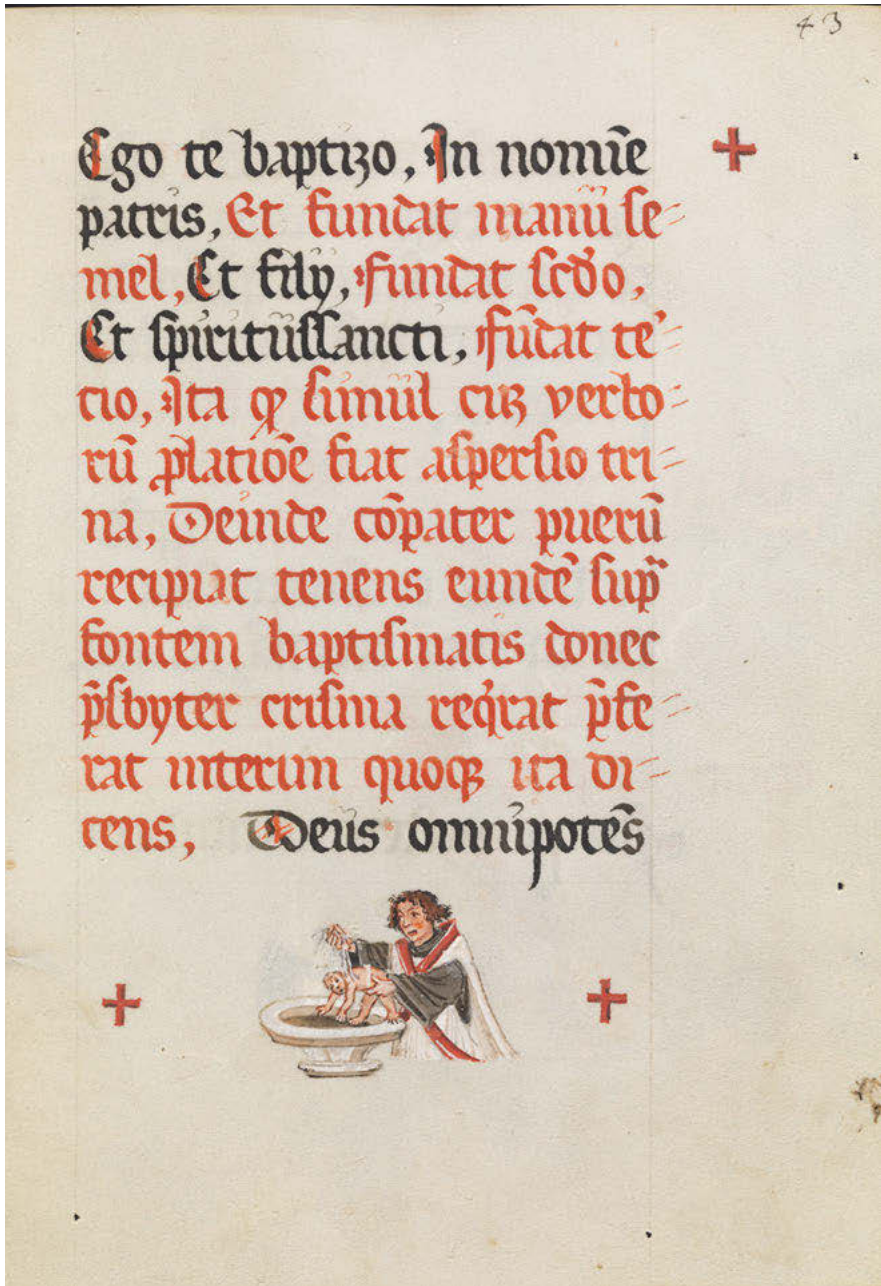 43
Ego te baptizo, In nomīe
patris, Et fundat manū se=
mel, Et filij, fundat scḋo,
Et spiritussancti, fūdat te᷒=
tio, Ita ꝙ simul cuꝫ verbo=
rū ꝓlatiōe fiat aspersio tri=
na, Deinde cōpater puerū
recipiat tenens eundē sup̄
fontem baptismatis donec
p̄sbyter crisma req̇rat p̄fe=
rat interim quoqꝫ ita di=
cens, Deus omnipotēs